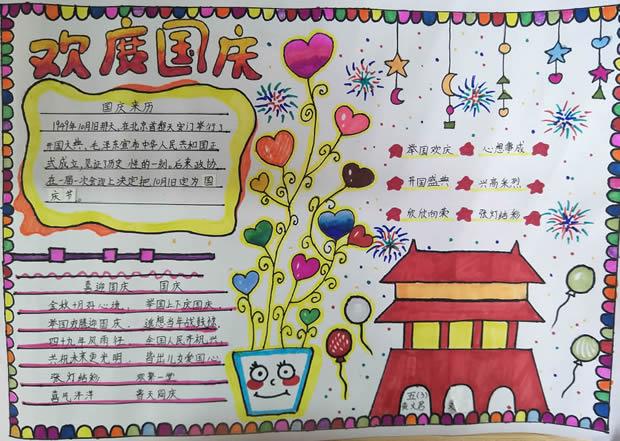 欢度国庆
国庆来历
1949年10月1日那天,在北京首都天安门举行了
开国大典,毛泽东宣布中华人民共和国正
式成立,见证了历史性的一刻。后来政协
在一届一次会议上决定把10月1日定为国
庆节。
举国欢庆 心想事成
开国盛典 兴高采烈
欣欣向荣 张灯结彩
喜迎国庆 国庆
金秋十月 心境, 举国上下庆国庆
举国欢腾迎国庆, 遥想当年战鼓
四十九年风雨行 全国人民齐机兴
共祝未来更光明, 皆出儿女爱国心
张灯结彩 欢聚一堂
喜气洋洋 普天同庆
五(3)